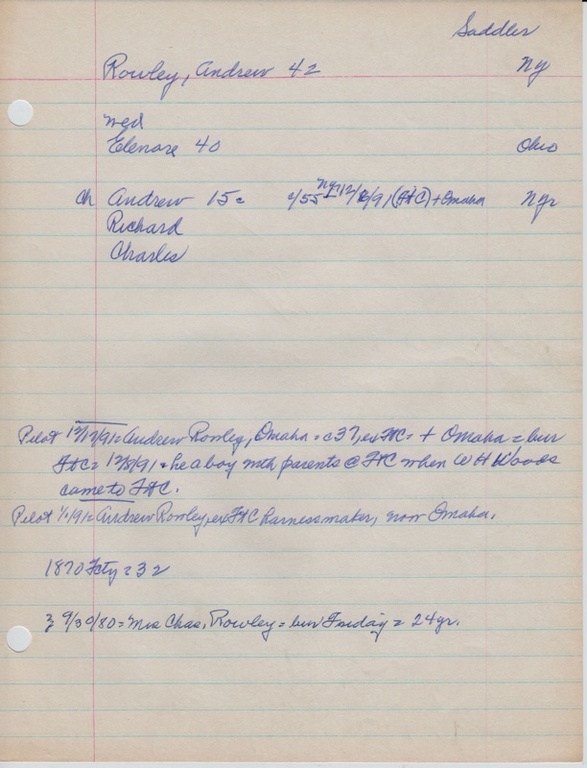 Saddler
Rowley, Andrew 42 NY
med
Elenore 40 Ohio
ch Andrew 15 = c/55 NY 12/8/91 (FtC) + Omaha NY
Richard
Charles
Pilot 12/17/91 = Andrew Rowley, Omaha = c37, ex FtC = + Omaha = bur
FtC = 12/8/91 = he a boy with parents @ FtC when W H Woods
came to FtC.
Pilot 1/1/91 = Andrew Rowley, ex FtC harnessmaker, now Omaha.
1870 Fcty = 32
9/30/80 = Mrs Chas. Rowley = bur Friday = 24 yr.